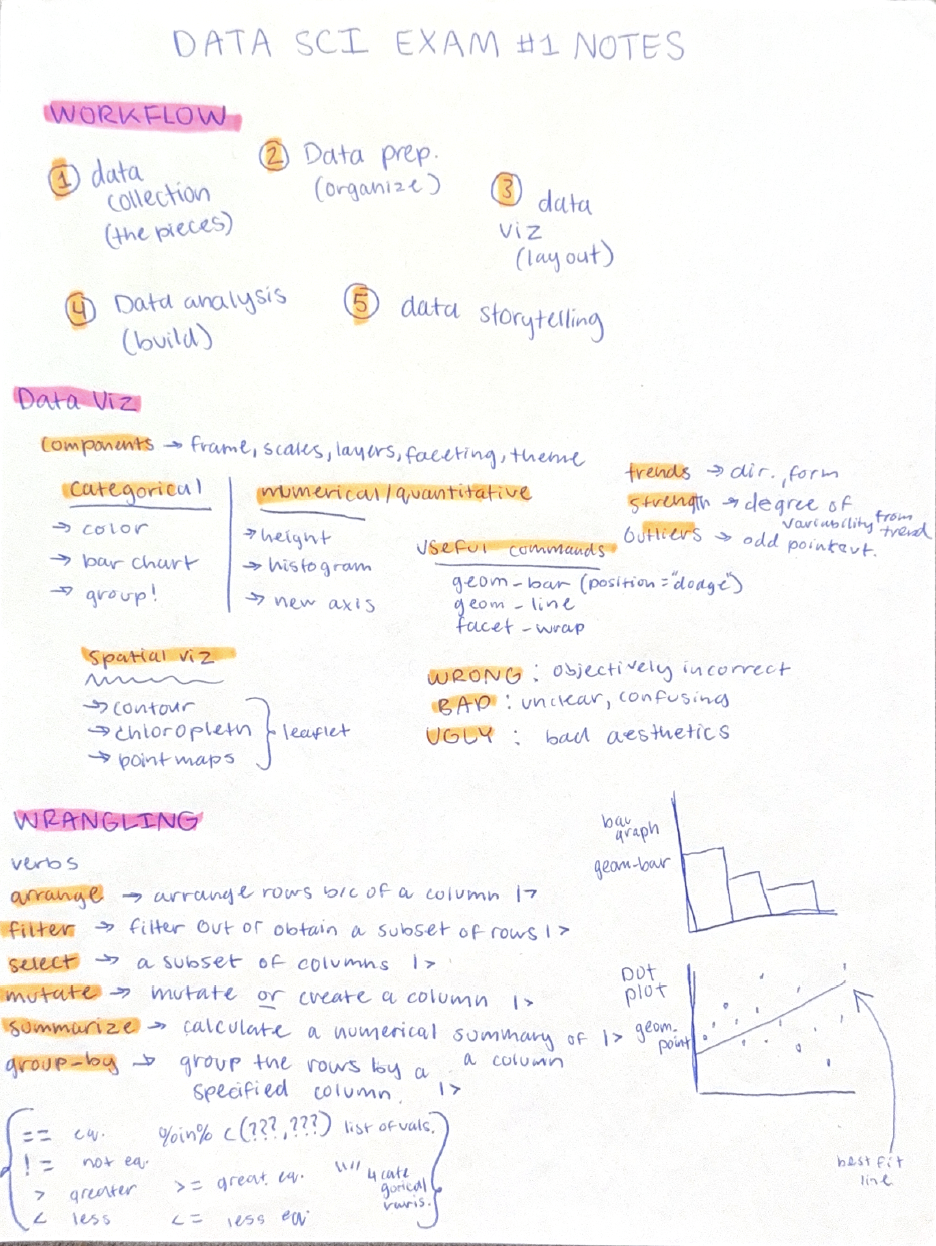 DATA SCI EXAM #1 NOTES
WORKFLOW
① data
collection
(the pieces)
② Data prep.
(organize)
③ data
viz
(layout)
④ Data analysis
(build)
⑤ data storytelling
Data Viz
components → frame, scales, layers, faceting, theme
categorical
→ color
→ bar chart
→ group!
numerical/quantitative
→ height
→ histogram
→ new axis
trends → dir., form
strength → degree of
variability from
trend
outliers → odd point out.
useful commands
geom-bar (position="dodge")
geom-line
facet-wrap
spatial viz
→ contour
→ chloropleth
→ point maps
leaflet
WRONG: objectively incorrect
BAD: unclear, confusing
UGLY: bad aesthetics
WRANGLING
verbs
arrange → arrange rows b/c of a column |>
filter → filter out or obtain a subset of rows |>
select → a subset of columns |>
mutate → mutate or create a column |>
summarize → calculate a numerical summary of |>
a column
group-by → group the rows by a
specified column. |>
== eq. %in% c(???,???) list of vals.
!= not eq.
> greater >= great. eq. "" 4 cate
gorical
varis.
< less <= less eq.
bar
graph
geom-bar
DOT
plot
geom.
point
best fit
line